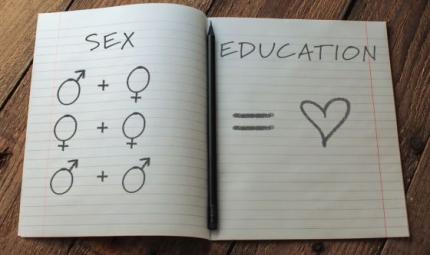 SEX
♂ + ♀
♀ + ♀
♂ + ♂
EDUCATION
=